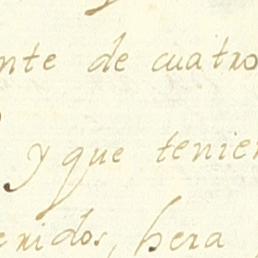 nte de cuatro
y que tenien
enidos, hera